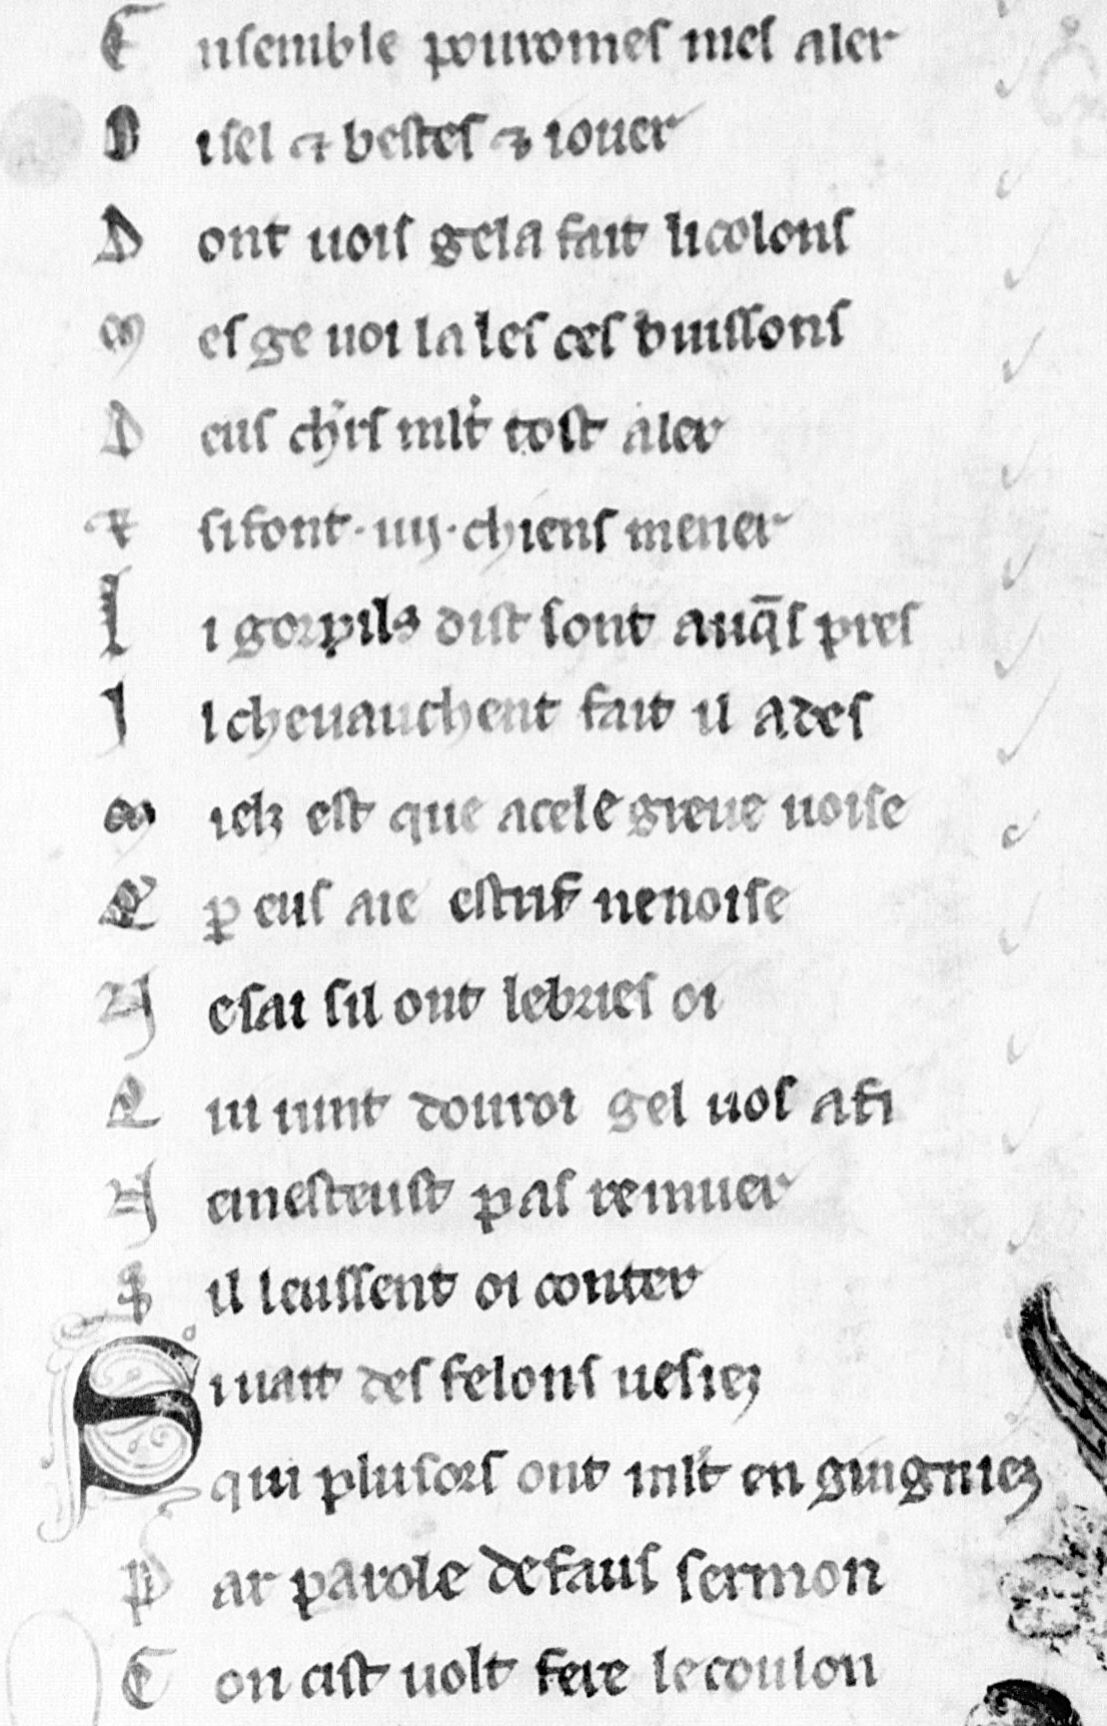 E nsemble pouromes mes aler
O isel ⁊ bestes ⁊ iouer
D ont uois gela fait li colons
M es ge uoi la les ces buissons
D eus chrs mlt tost aler
⁊ si font · iiij · chiens mener
L i gorpils dist sont auq̄s pres
I l cheuauchent fait il ades
M ielz est que acele greue uoise
Q ꝑ eus aie estrif ne noise
N e sai sil ont le bries oi
Q ui iunt douroi gel uos afi
N e mesteust pas remuer
S il leussent oi conter
S i uait des felons uesiez
qui plusors ont mlt en guigniez
P ar parole de faus sermon
C on cist uolt fere le coulon